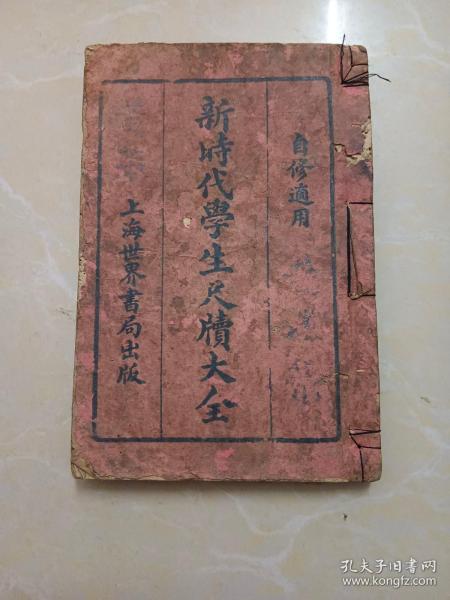 自修適用
新時代學生尺牘大全
上海世界書局出版
孔夫子旧书网
www.kongfz.com